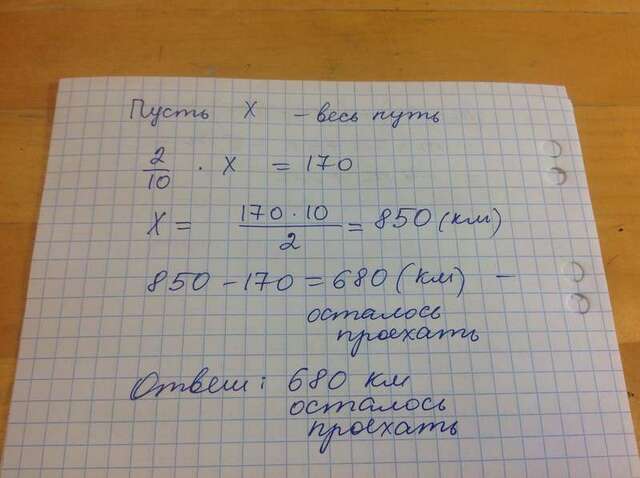 Пусть X - весь путь
2/10 · X = 170
X = 170 · 10 / 2 = 850 (км)
850 - 170 = 680 (км) -
осталось
проехать
Ответ: 680 км
осталось
проехать